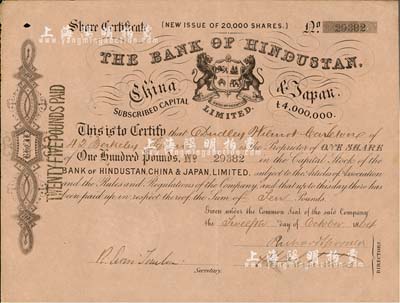 Share Certificate
(NEW ISSUE OF 20,000 SHARES.)
No 29382
THE BANK OF HINDUSTAN,
China & Japan,
SUBSCRIBED CAPITAL
£4,000,000.
LIMITED.
This is to Certify that Dudley Wilmot Carleton of
Berkeley Proprietor of ONE SHARE
of One Hundred Pounds, No 29382 in the Capital Stock of the
BANK OF HINDUSTAN, CHINA & JAPAN, LIMITED, subject to the Articles of Association
and the Rules and Regulations of the Company and that up to this day there has
been paid up in respect thereof the Sum of Ten Pounds.
Given under the Common Seal of the said Company
the Twelfth day of October 1864
Secretary.
TWENTY FIVE POUNDS PAID
上海阳明拍卖